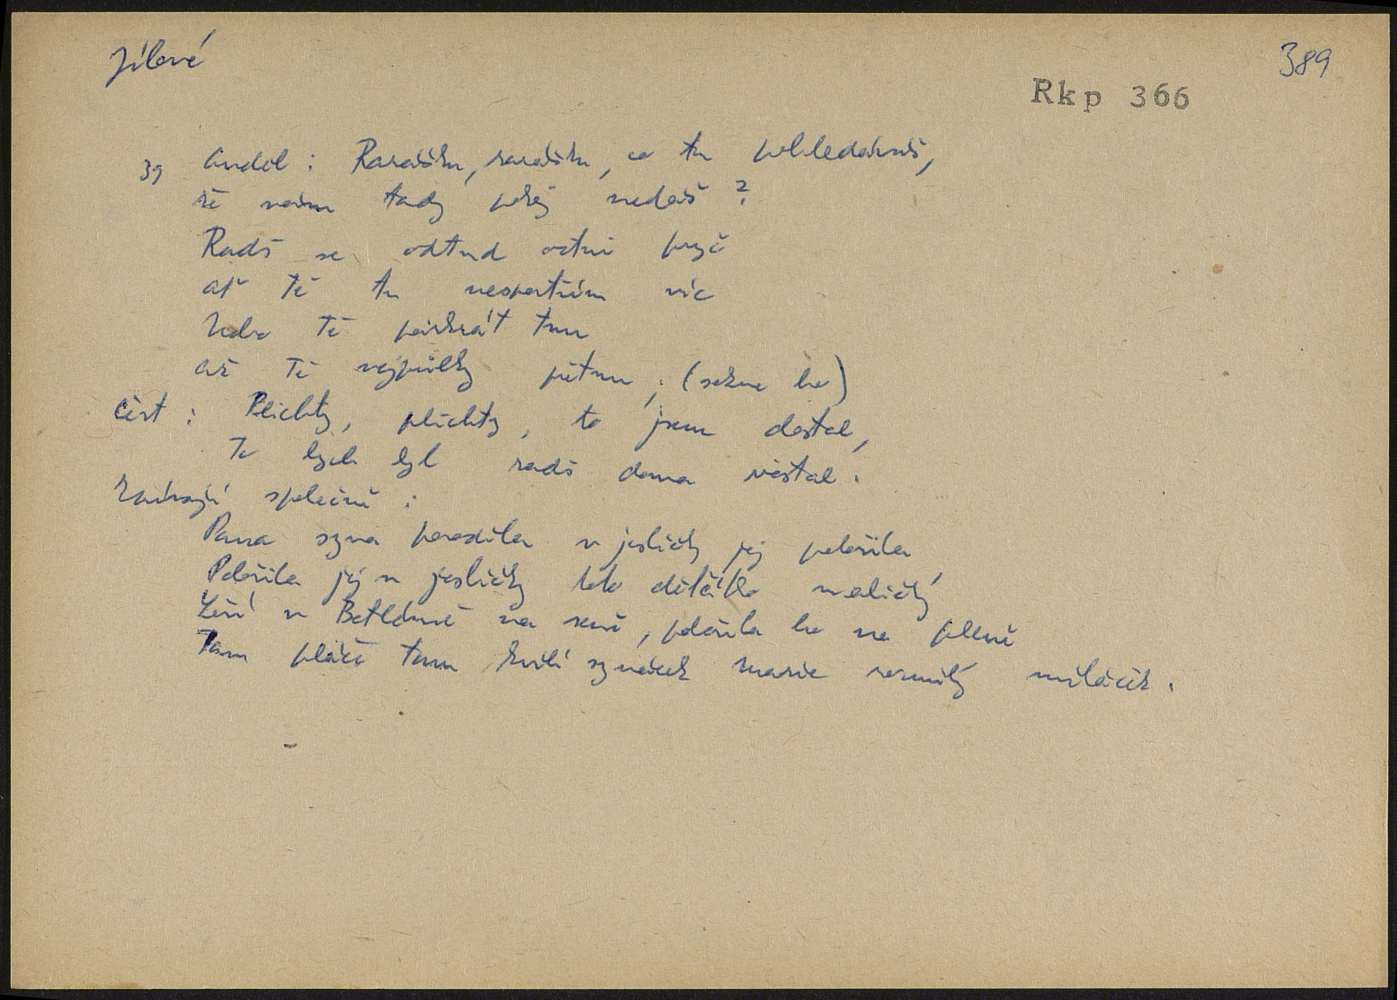 Jílové
389
Rkp 366
39 Anděl: Rarášku, rarášku, co tu pohledáváš,
že nám tady pokoj nedáš?
Radš se odtud ostni pryč
ať tě tu nespatřím víc
Nebo tě párkrát tnu
až tě vejpůlky přetnu, (sekne ho)
Čert: Plichty, plichty, to jsem dostal,
To bych byl radš doma zůstal.
Zpívají společně:
Panna syna porodila v jesličky jej položila,
Položila jej v jesličky toto děťátko maličký
Leží v Betlémě na seně, položila ho na pleně
Tam pláče tam kvílí synáček Marie rozmilý miláček.